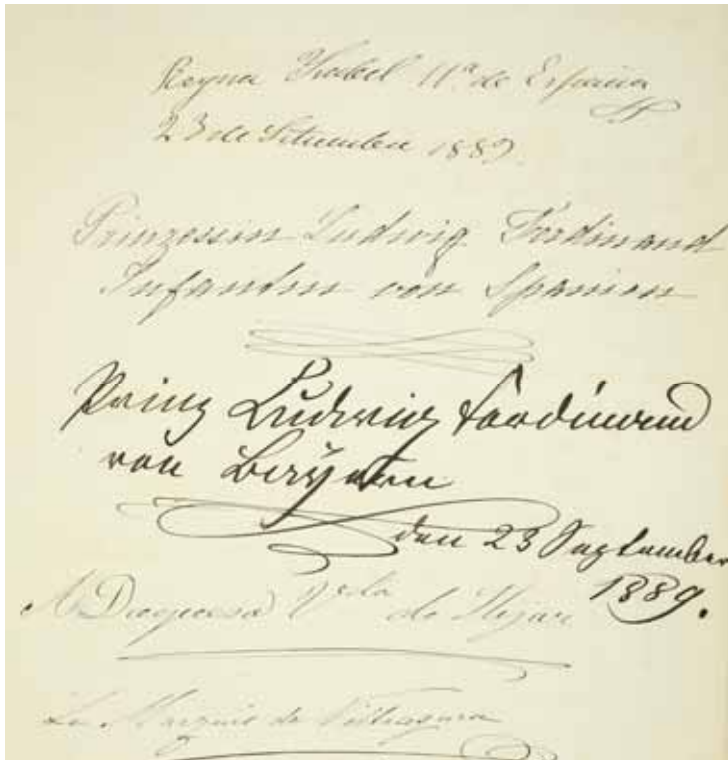 Reyna Ysabel IIª. de España
23 de Setiembre 1889.
Prinzessin Ludwig Ferdinand
Infantin von Spanien
Prinz Ludwig Ferdinand
von Bayern
den 23 September
1889.
Duquesa de Hijar
La Marquis de